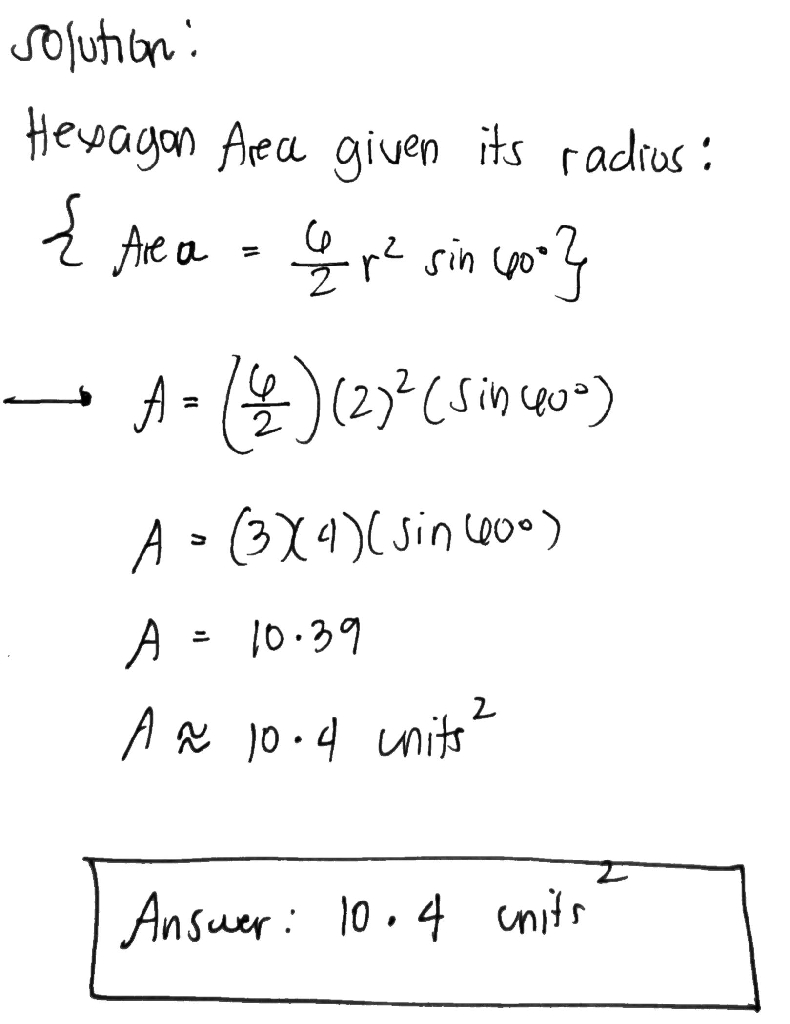 Solution:
Hexagon Area given its radius:
{ Area = 6/2 r² sin 60° }
→ A = (6/2)(2)²(sin 60°)
A = (3)(4)(sin 60°)
A = 10.39
A ≈ 10.4 units²
Answer: 10.4 units²